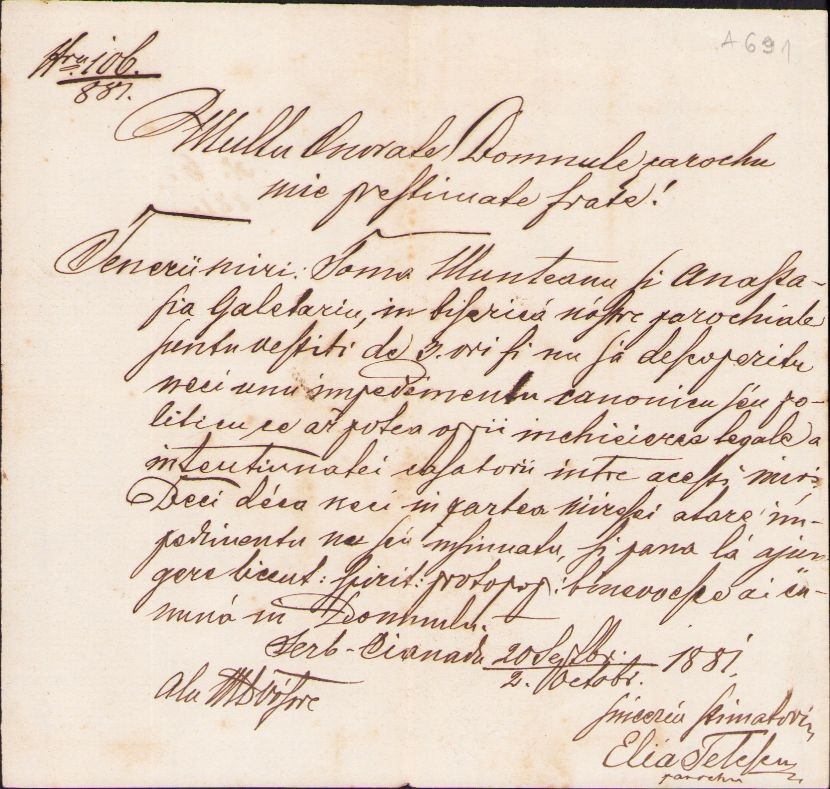 A691
Nru 106.
881.
Multu Onorate Domnule parochu
mie prestimate frate!
Tenerii miri: Toma Munteanu si Anasta-
sia Galetariu, in biserica nóstre parochiale
suntu vestiti de 3. ori si nu sá descoperitu
neci unu impedimentu canonicu séu po-
liticu ce ar potea opri inchieierea legale a
intentiunatei casatorii intre acesti miri.
Deci déca neci in partea miresei atare im-
pedimentu nu sú insinuatu, si pana la ajun
gere licent: spirit: protopop: binevoesce ai cu-
nuná in Domnulu.
Serb-Cianadu 20 Septbr. 1881.
2. Octobr.
Alu M D Vóstre
sinceriu stimatoriu
Elia Telescu
parochu